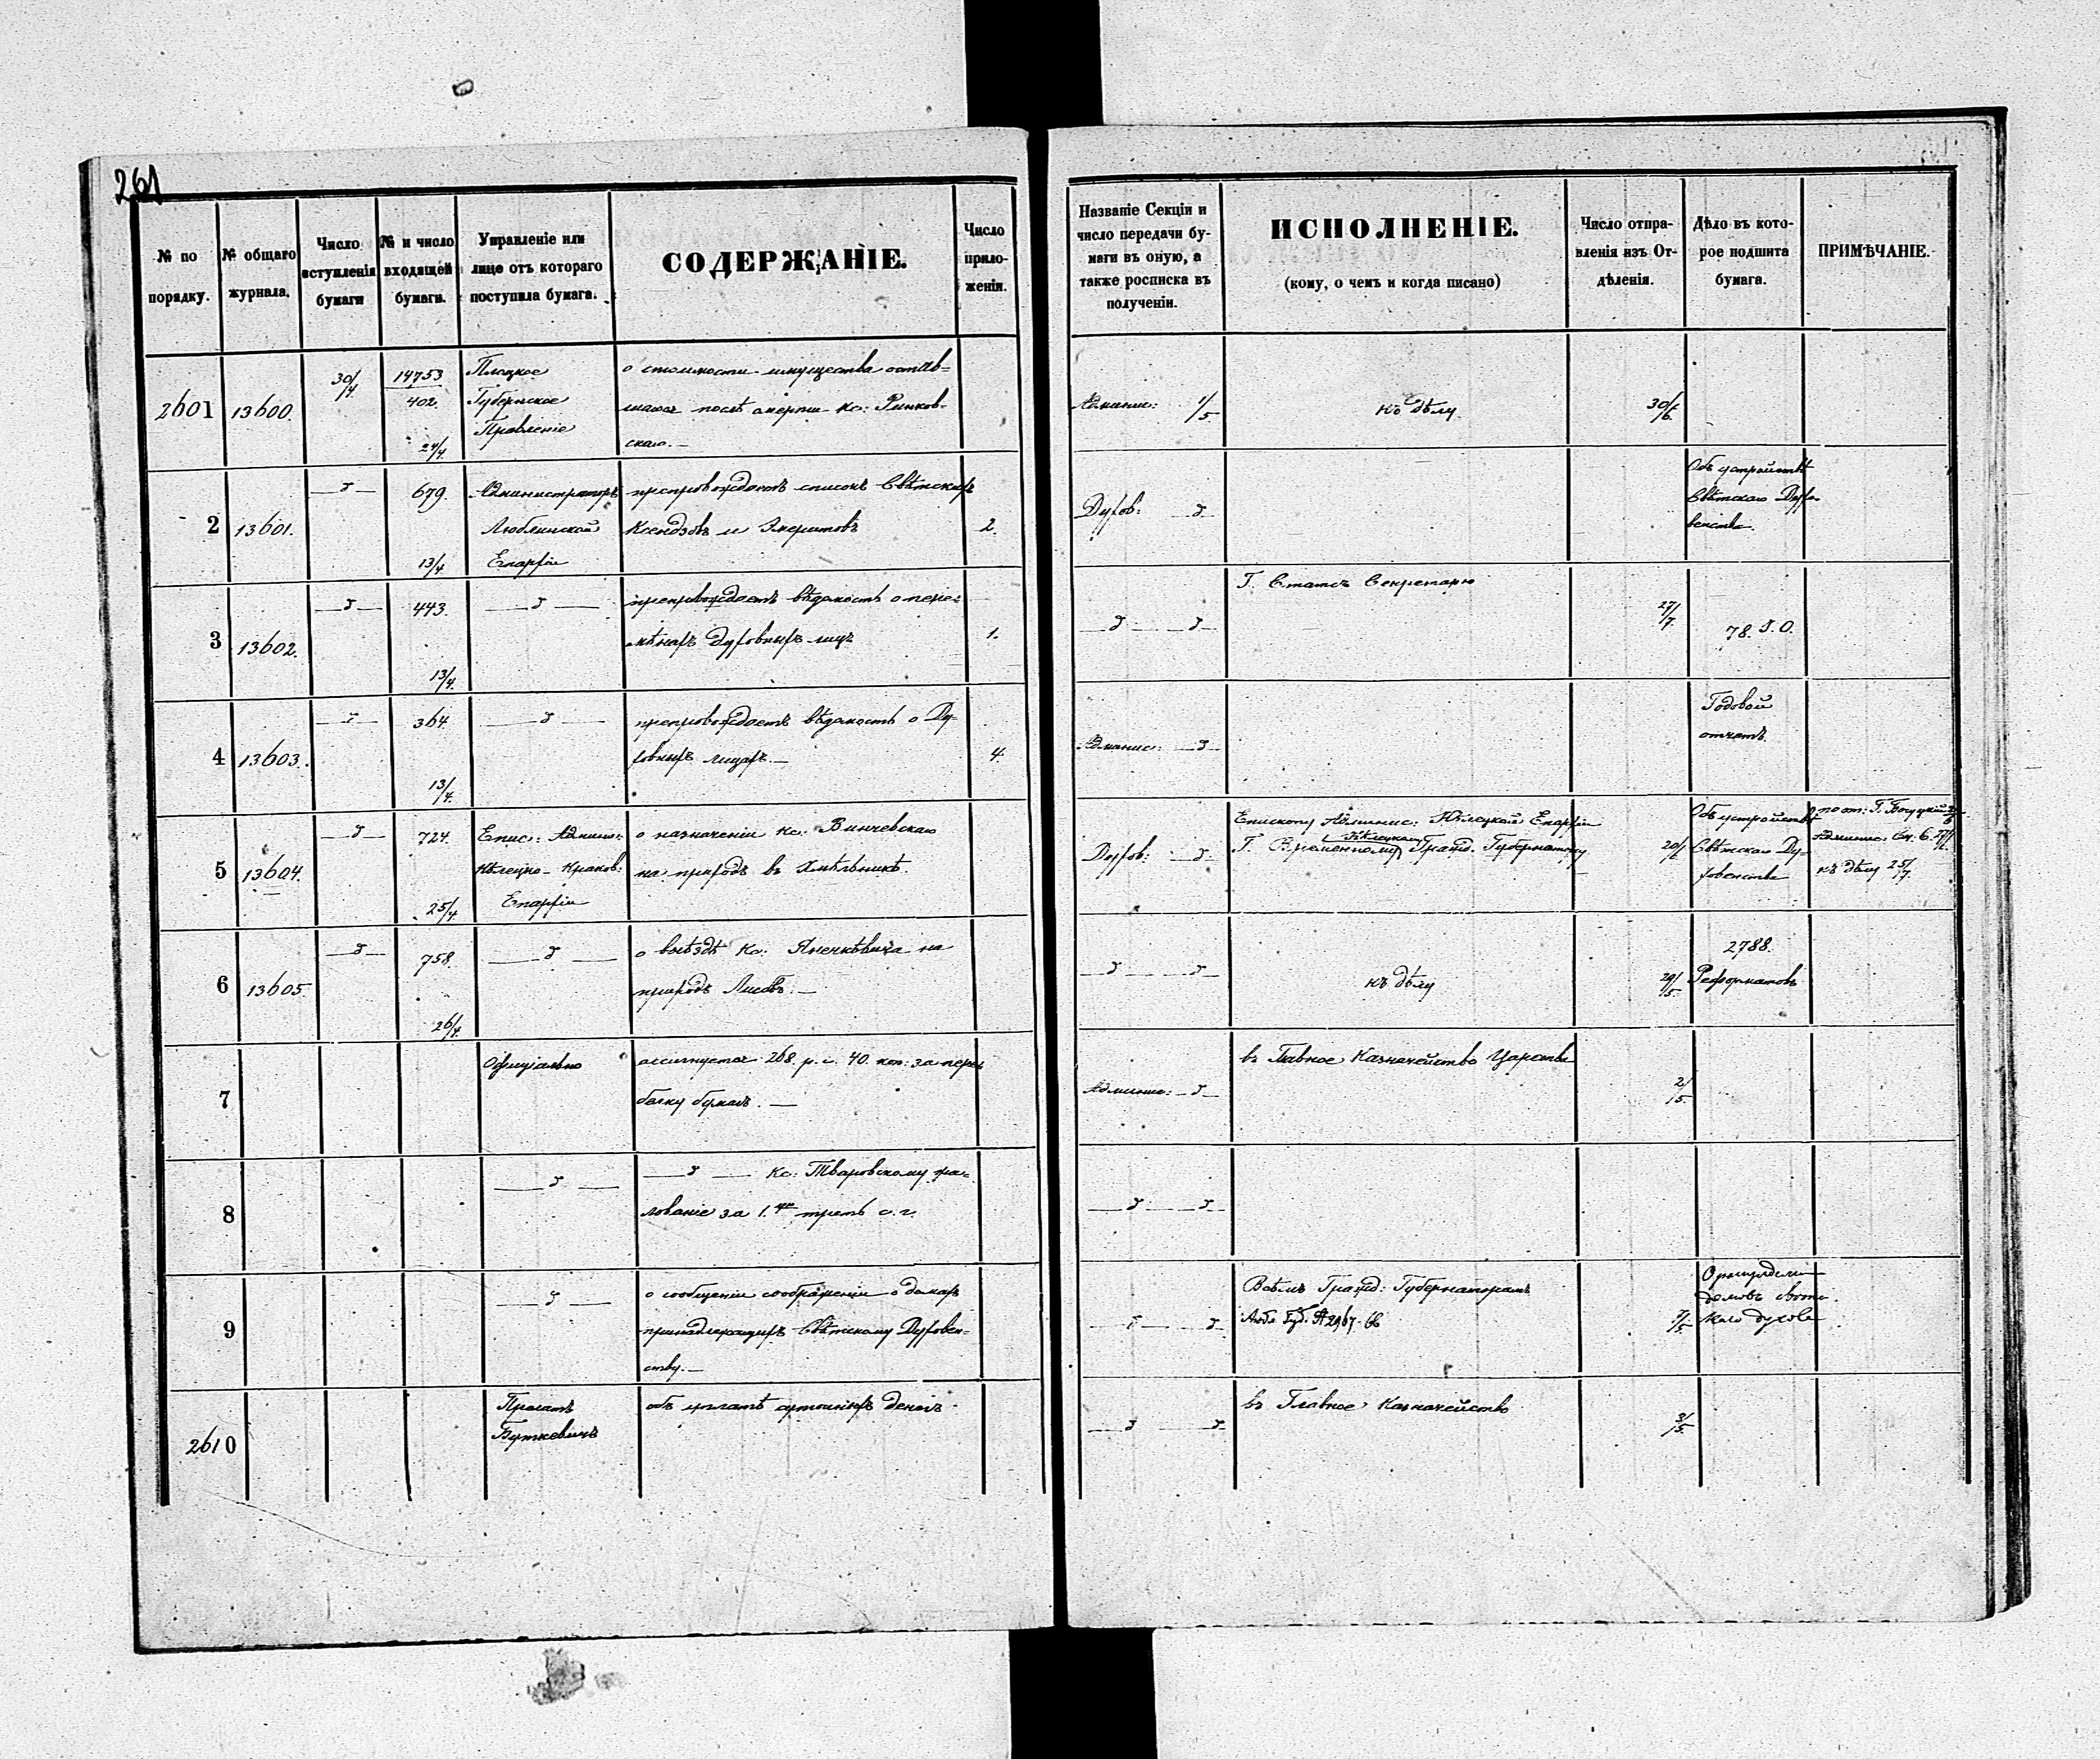 261
№ по порядку.
№ общаго журнала.
Число вступленія бумаги
№ и число входящей бумаги.
Управленіе или лице отъ котораго поступила бумага.
СОДЕРЖАНІЕ.
Число приложеній.
Названіе Секціи и число передачи бумаги въ оную, а также росписка въ полученіи.
ИСПОЛНЕНІЕ.
(кому, о чемъ и когда писано)
Число отправленія изъ Отдѣленія.
Дѣло въ которое подшита бумага.
ПРИМѢЧАНІЕ.
2601
13600.
30/4
14753
402.
24/4.
Плоцкое
Губернское
Правленіе
о стоимости имущества остав-
шагося послѣ смерти Кс:
скаго.—
Админис: 1/5
Къ дѣлу
30/6.
2
13601.
679.
13/4
Администраторъ
Люблинской
Епархіи
препровождаетъ списокъ Свѣтскихъ
Ксендзовъ и Эмеритовъ
2.
Духов:
Объ устройствѣ
Свѣтскаго Духо-
венства.
3
13602.
443.
13/4.
препровождаетъ вѣдомость о пере-
мѣнахъ Духовныхъ лицъ
1.
Г. Статсъ Секретарю
27/7.
78.
4
13603.
364.
13/4.
препровождаетъ вѣдомость о Ду-
ховныхъ лицахъ.—
4.
Админис:
Годовой
отчетъ.
5
13604.
724.
25/4
Епис: Админ:
Кѣлецко-Краков:
Епархіи
о назначеніи Кс: Винчевскаго
на приходъ въ Хмѣльникъ.
Духов:
Епископу Админис: Кѣлецкой Епархіи
Кѣлецкому
Г. Временному Гражд. Губернатору
20/
Объ устройствѣ
Свѣтскаго Ду-
ховенства
къ дѣлу 25/7.
6
13605
758.
26/4.
о выѣздѣ Кс: на
приходъ
къ дѣлу
29/5.
2788.
Реформатовъ
7
Офиціально
ассигнуется 268 р. с. 40. коп: за пере
бумагъ.—
Админис:
въ Главное Казначейство Царства
2/5.
8
Кс: Тваровскому жа-
лованіе за 1. треть с. г.
9
о сообщеніи соображеніи о домахъ
принадлежащихъ Свѣтскому Духовен-
ству.—
Всѣмъ Гражд: Губернаторамъ
7/5
домовъ
духове
2610
Прелатъ
Буткевичъ
объ уплатѣ денегъ
въ Главное Казначейство
3/5.